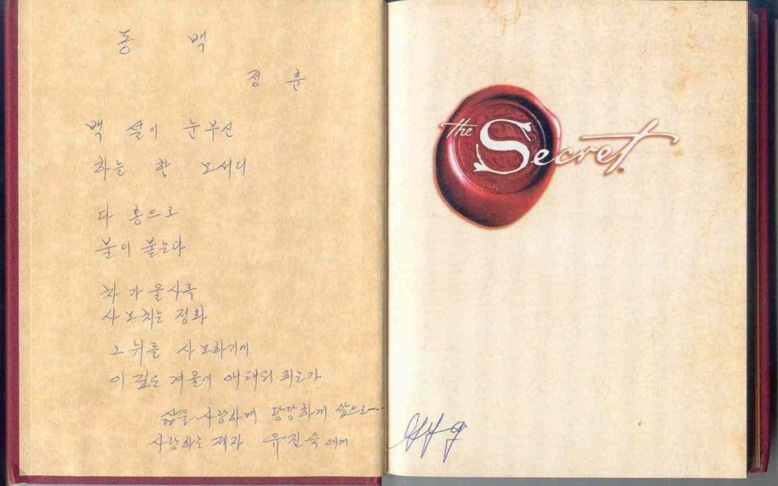 동 백
정 훈
백 설이 눈부신
하늘 한 모서리
다 홍으로
불이 붙는다
차 가울사록
사모치는 정화
그 뉘를 사모하기에
이 깊은 겨울에 애태워 피는가
삶을 사랑하며 당당하게 삶으로....
사랑하는 제자 유진숙에게
the Secret